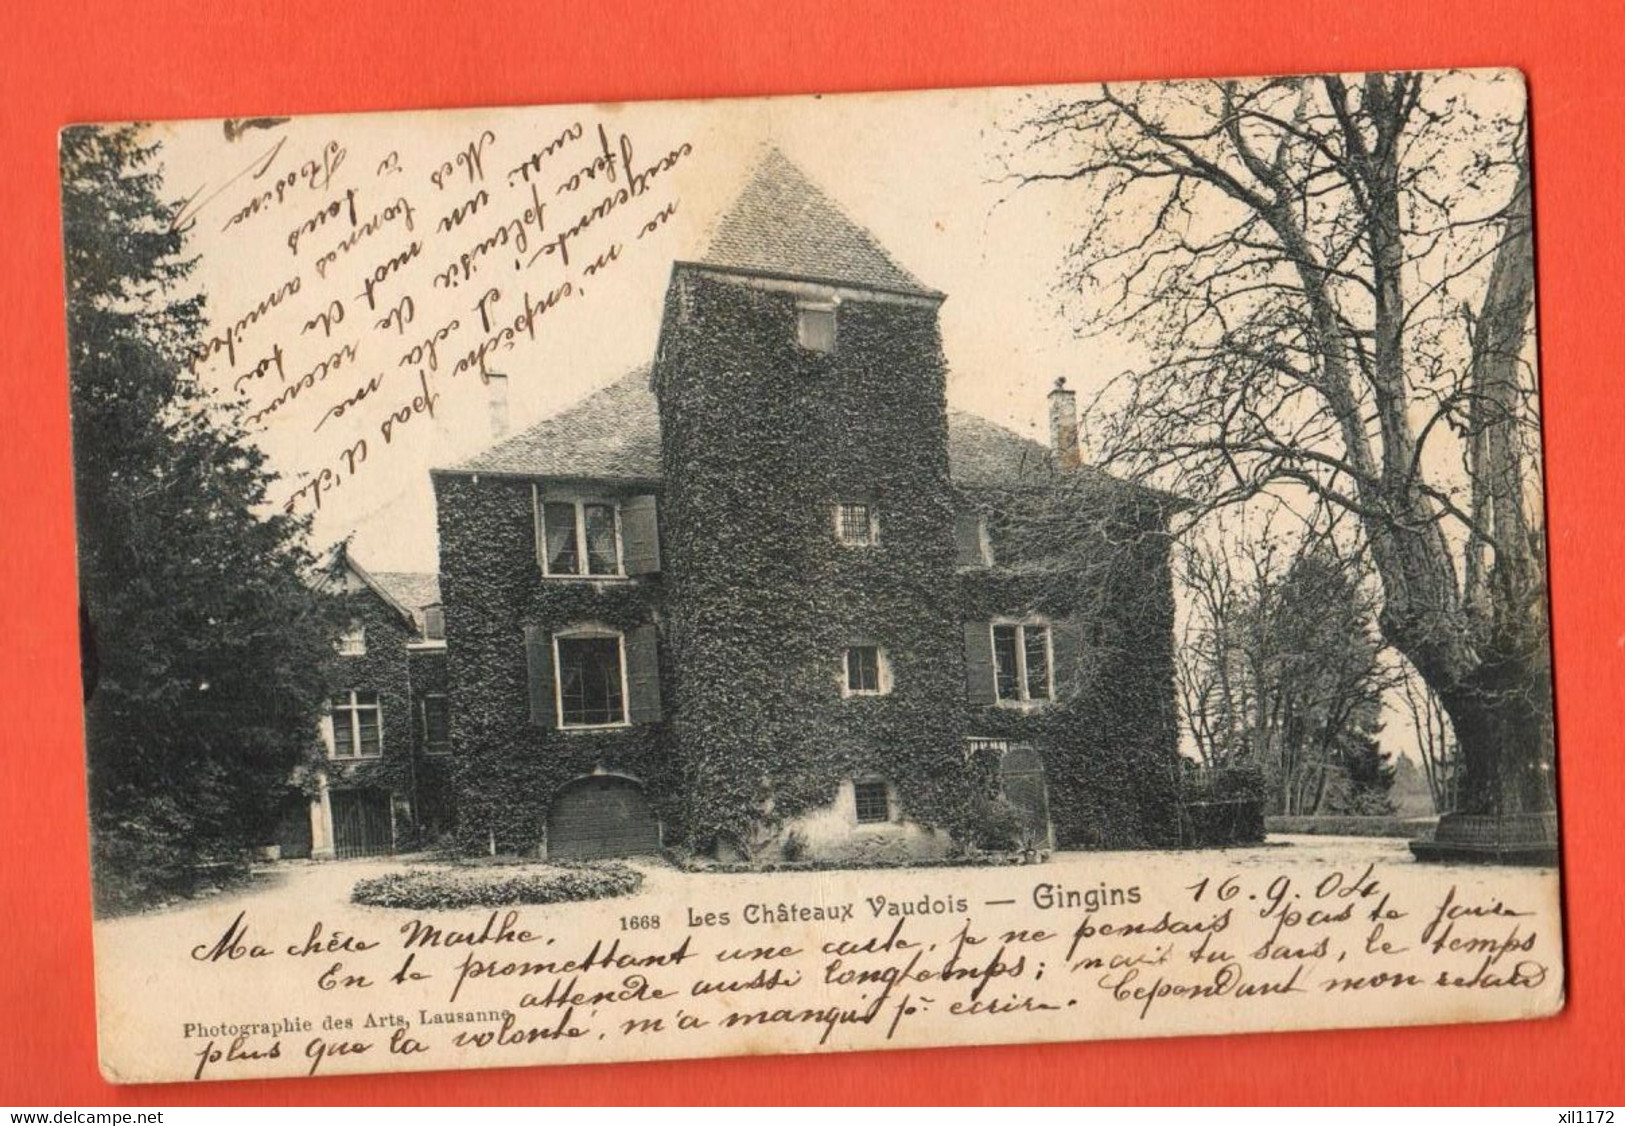 1668 Les Châteaux Vaudois — Gingins 16.9.04
Ma chère Marthe.
En te promettant une carte, je ne pensais pas te faire
attendre aussi longtemps; mais tu sais, le temps
Photographie des Arts, Lausanne
plus que la volonté, m'a manqué pr. écrire. Cependant mon retard
ne m'empêche pas d'être
exigeante, et cela me
fera plaisir de recevoir
aussi un mot de toi
Mes bonnes amitiés
à tous
Rosine
delcampe.net
xil1172